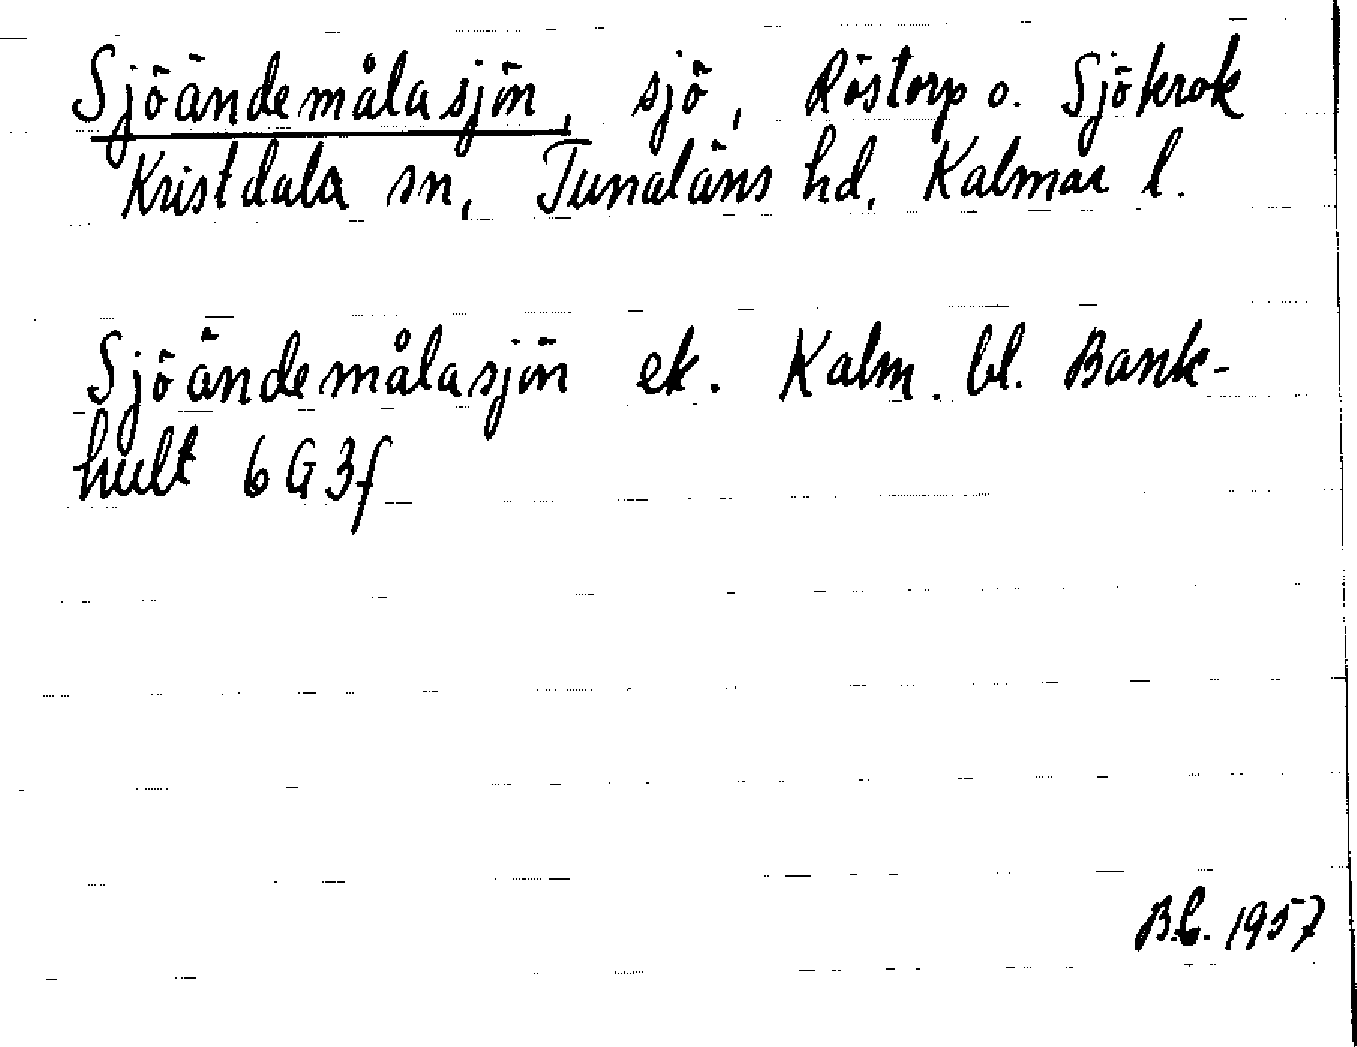 Sjöändemålasjön, sjö, Röstorp o. Sjökrok
Kristdala sn, Tunaläns hd, Kalmar l.
Sjöändemålasjön ek. Kalm. bl. Bank-
hult 6G3f
B.L. 1957